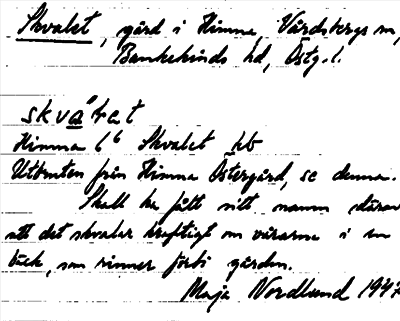 Skvalet, gård i Himna, Vårdsbergs sn,
Bankekinds hd, Östg. l.
skvà̱ʹlet
Himna 6⁶ Skvalet kb
Utbruten från Himna Östergård, se denna.
Skall ha fått sitt namn därav
att det skvalar kraftigt om vårarna i en
bäck, som rinner förbi gården.
Maja Nordlund 1947